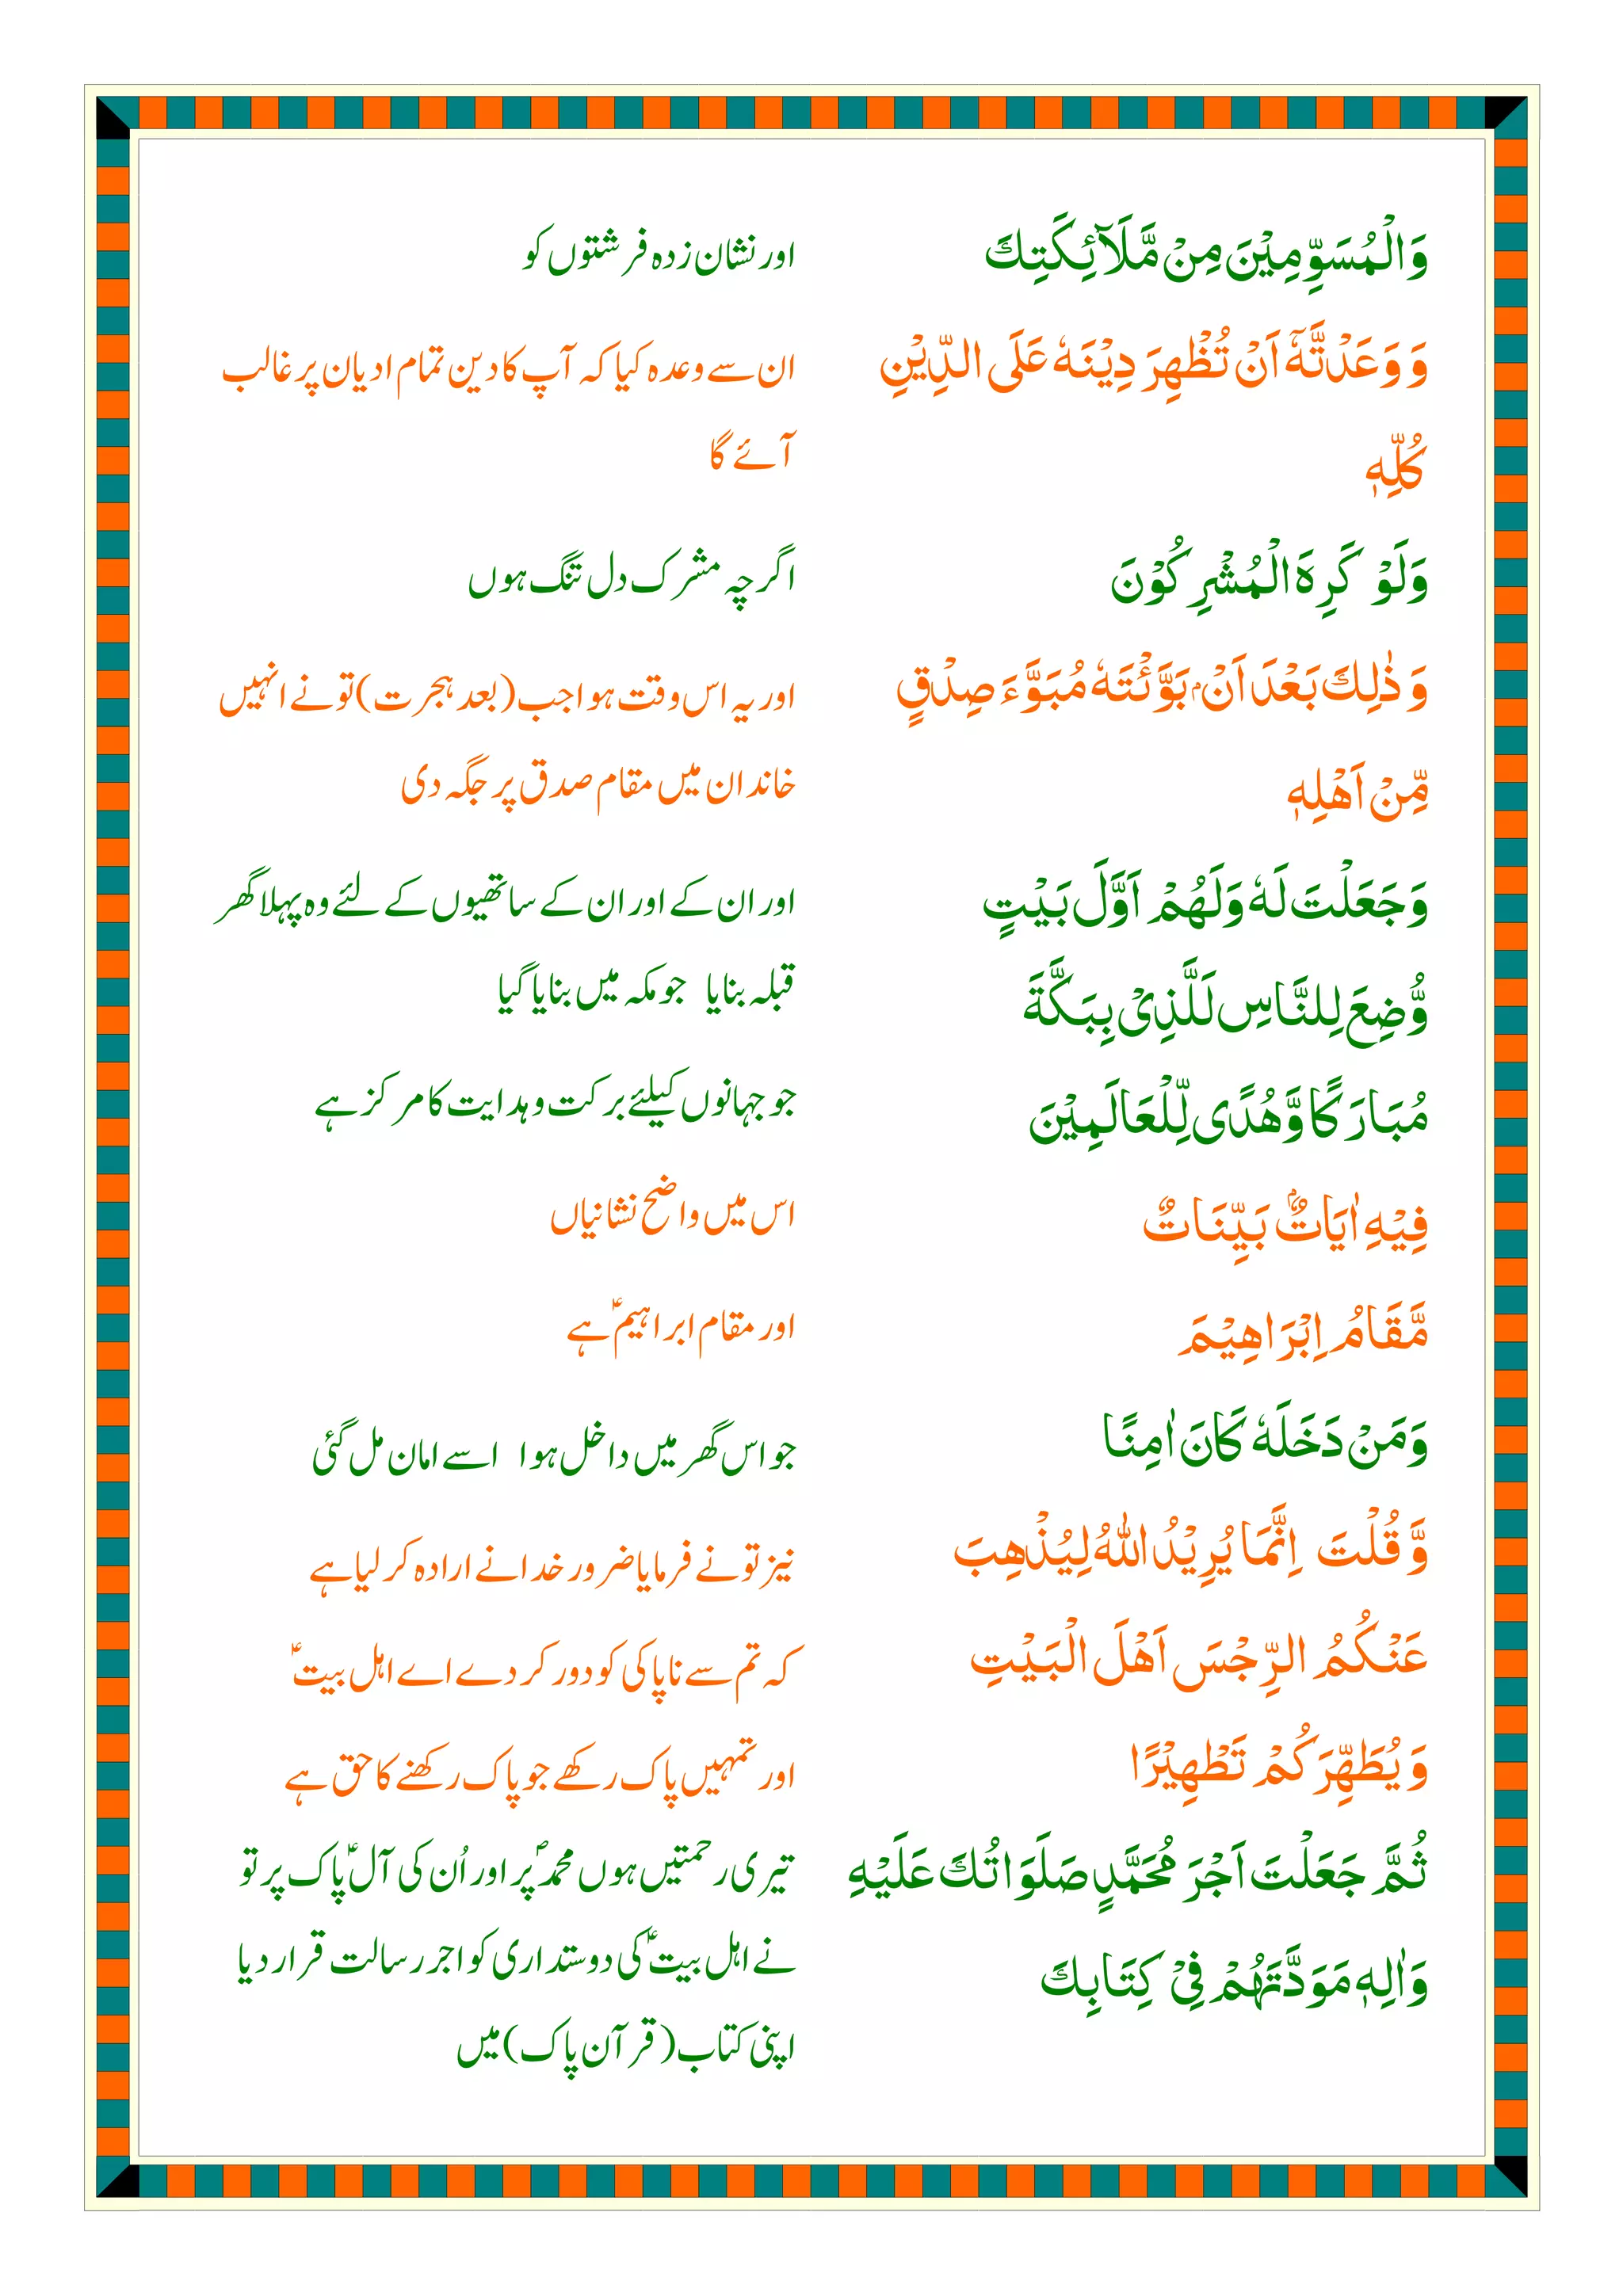 وَالْمُسَوِّمِيْنَ مِنْ مَّلَآئِكَتِكَ
اور نشان زدہ فرشتوں کو
وَ وَعَدْتَّهٗٓ اَنْ تُظْهِرَ دِيْنَهٗ عَلَى الدِّيْنِ
كُلِّهٖ
ان سے وعدہ کیا کہ آپ کا دین تمام ادیان پر غالب
آئے گا
وَلَوْ كَرِهَ الْمُشْرِكُوْنَ
اگرچہ مشرک دل تنگ ہوں
وَ ذٰلِكَ بَعْدَ اَنْۢ بَوَّئْتَهٗ مُبَوَّءَ صِدْقٍ
مِّنْ اَهْلِهٖ
اور یہ اس وقت ہوا جب (بعد ہجرت) تو نے انہیں
خاندان میں مقام صدق پر جگہ دی
وَجَعَلْتَ لَهٗ وَلَهُمْ اَوَّلَ بَيْتٍ
وُّضِعَ لِلنَّاسِ لَلَّذِىْ بِبَكَّةَ
اور ان کے اور ان کے ساتھیوں کے لئے وہ پہلا گھر
قبلہ بنایا جو مکہ میں بنایا گیا
مُبَارَكًا وَّهُدًى لِّلْعَالَمِيْنَ
جو جہانوں کیلئے برکت و ہدایت کا مرکز ہے
فِيْهِ اٰيَاتٌۢ بَيِّنَاتٌ
اس میں واضح نشانیاں
مَّقَامُ اِبْرَاهِيْمَ
اور مقام ابراہیمؑ ہے
وَمَنْ دَخَلَهٗ كَانَ اٰمِنًا
جو اس گھر میں داخل ہوا اسے امان مل گئی
وَّ قُلْتَ اِنَّمَا يُرِيْدُ اللّٰهُ لِيُذْهِبَ
نیز تو نے فرمایا ضرور خدا نے ارادہ کر لیا ہے
عَنْكُمُ الرِّجْسَ اَهْلَ الْبَيْتِ
کہ تم سے ناپاکی کو دور کر دے اے اہل بیتؑ
وَ يُطَهِّرَكُمْ تَطْهِيْرًا
اور تمہیں پاک رکھے جو پاک رکھنے کا حق ہے
ثُمَّ جَعَلْتَ اَجْرَ مُحَمَّدٍ صَلَوَاتُكَ عَلَيْهِ
وَاٰلِهٖ مَوَدَّتَهُمْ فِىْ كِتَابِكَ
تیری رحمتیں ہوں محمدؐ پر اور اُن کی آلؑ پاک پر تو
نے اہل بیتؑ کی دوستداری کو اجر رسالت قرار دیا
اپنی کتاب (قرآن پاک) میں